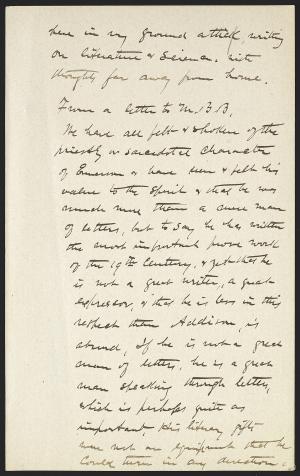 here in my ground attic, writing
on literature & Science. with
thoughts far away from home.
From a letter to M. B. B,
We have all felt & spoken of the
priestly or sacerdotal character
of Emerson & have seen & felt his
value to the Spirit & that he was
much more than a mere man
of letters, but to say he has written
the most important prose work
of the 19th Century, & yet that he
is not a great writer, a great
expressor, & that he is less in this
respect than Addison, is
absurd, if he is not a great
man of letters, he is a great
man speaking through letters,
which is perhaps quite as
important, His literary gifts
were not an equipment that he
could turn in any direction.